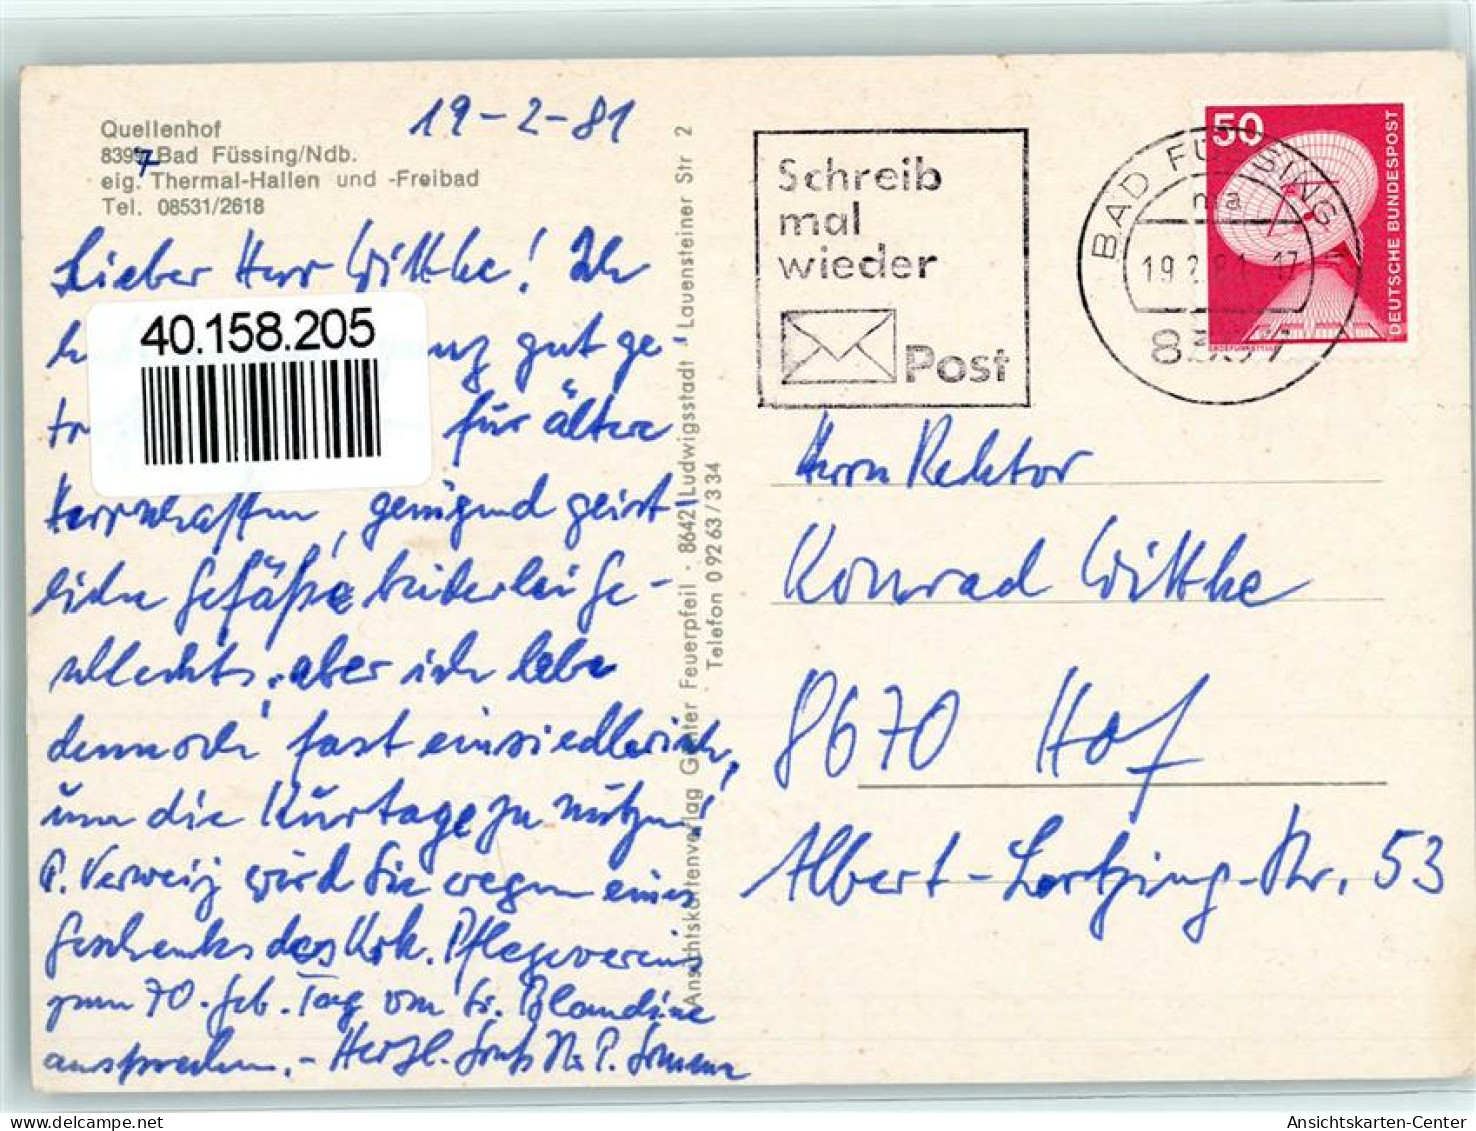 Quellenhof
8397 Bad Füssing/Ndb.
eig. Thermal-Hallen und -Freibad
Tel. 08531/2618
19-2-81
Lieber Herr Wittke! Ich
gut ge-
für ältere
Herrschaften, genügend geist-
liche Gefäße beiderlei Ge-
schlechts, aber ich lebe
dennoch fast einsiedlerisch,
um die Kurtage zu nützen!
P. Verweij wird Sie wegen eines
Geschenks des Krk. Pflegevereins
zum 70. Geb. Tag von Sr. Blandine
ansprechen. - Herzl. Gruß P.
40.158.205
Ansichtskartenverlag Günter Feuerpfeil · 8642 Ludwigsstadt Lauensteiner Str 2
Telefon 0 92 63 / 3 34
Schreib
mal
wieder
Post
BAD FÜSSING 1
ma
19.2.81-17
8397
50
DEUTSCHE BUNDESPOST
ERDEFUNKSTELLE
Herrn Rektor
Konrad Wittke
8670 Hof
Albert-Lortzing-Str. 53
Ansichtskarten-Center
http://www.ansichtskarten-center.de